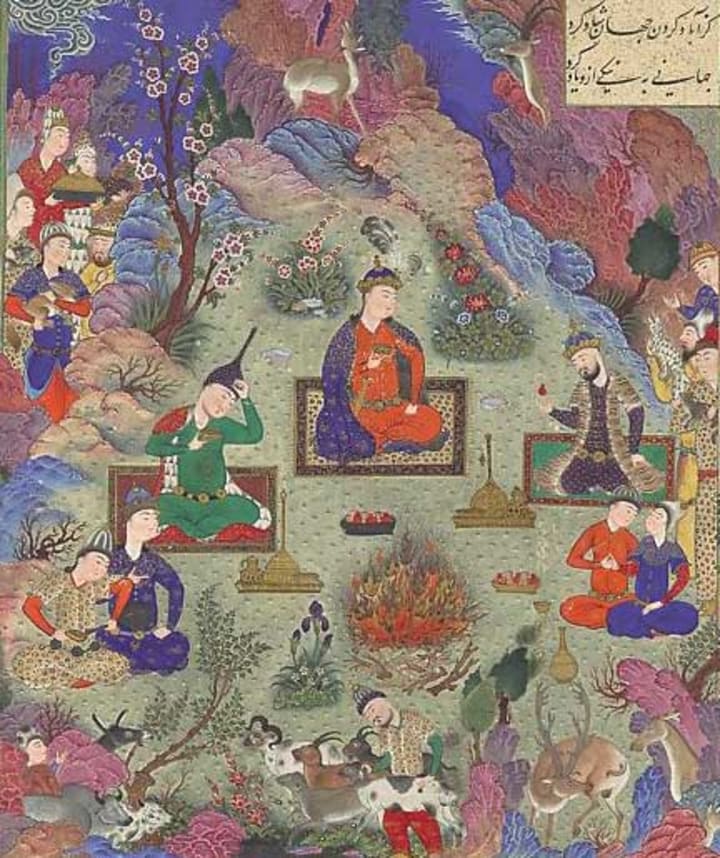 کز آباد کردن جهان شاد کرد
جهانی به نیکی ازو یاد کرد